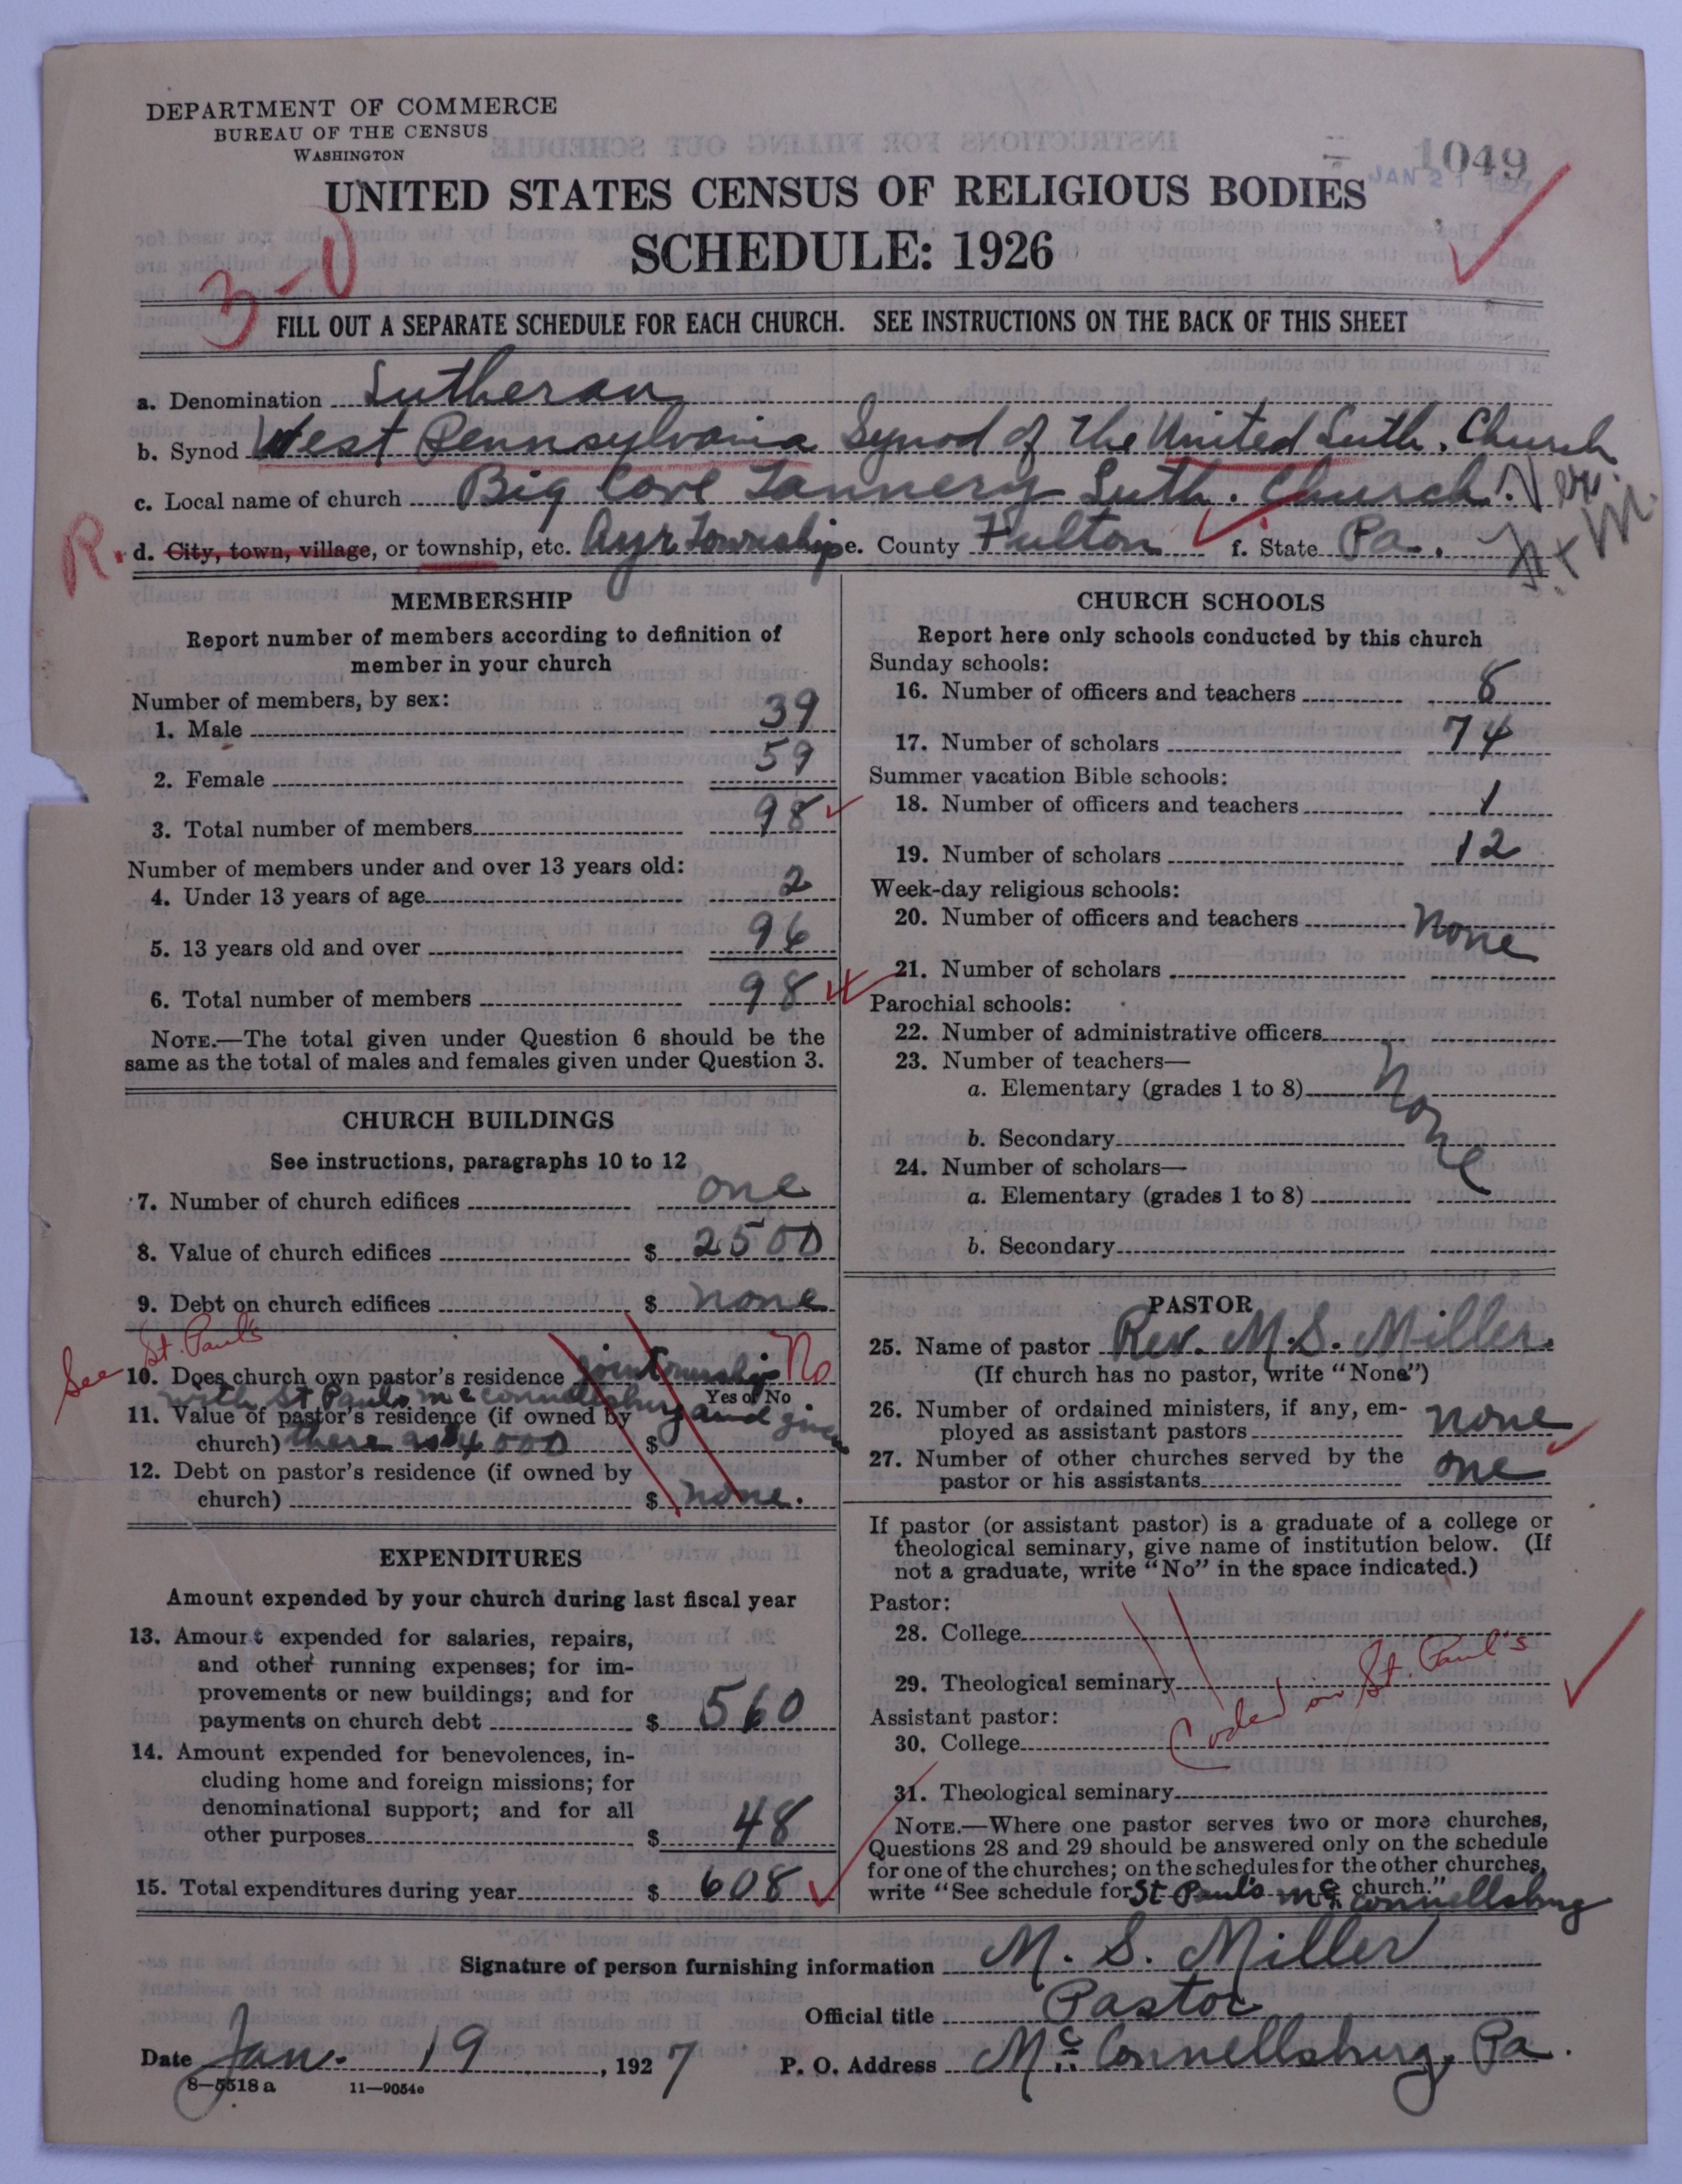 DEPARTMENT OF COMMERCE
BUREAU OF THE CENSUS
WASHINGTON
1049
JAN 21 1927
UNITED STATES CENSUS OF RELIGIOUS BODIES
SCHEDULE: 1926
3-0
FILL OUT A SEPARATE SCHEDULE FOR EACH CHURCH. SEE INSTRUCTIONS ON THE BACK OF THIS SHEET
a. Denomination Lutheran
b. Synod West Pennsylvania Synod of the United Luth. Church
c. Local name of church Big Cove Tannery Luth. Church
R. d. City, town, village, or township, etc. Ayr Township e. County Fulton f. State Pa.
MEMBERSHIP
Report number of members according to definition of
member in your church
Number of members, by sex:
1. Male 39
2. Female 59
3. Total number of members 98
Number of members under and over 13 years old:
4. Under 13 years of age 2
5. 13 years old and over 96
6. Total number of members 98
NOTE.—The total given under Question 6 should be the
same as the total of males and females given under Question 3.
CHURCH BUILDINGS
See instructions, paragraphs 10 to 12
7. Number of church edifices one
8. Value of church edifices $ 2500
9. Debt on church edifices $ none
See St. Paul's
10. Does church own pastor's residence joint ownership No
Yes or No
with St Pauls McConnellsburg and given
11. Value of pastor's residence (if owned by
church) there as $4000 $
12. Debt on pastor's residence (if owned by
church) $ none.
EXPENDITURES
Amount expended by your church during last fiscal year
13. Amount expended for salaries, repairs,
and other running expenses; for im-
provements or new buildings; and for
payments on church debt $ 560
14. Amount expended for benevolences, in-
cluding home and foreign missions; for
denominational support; and for all
other purposes $ 48
15. Total expenditures during year $ 608
CHURCH SCHOOLS
Report here only schools conducted by this church
Sunday schools:
16. Number of officers and teachers 8
17. Number of scholars 74
Summer vacation Bible schools:
18. Number of officers and teachers 1
19. Number of scholars 12
Week-day religious schools:
20. Number of officers and teachers None
21. Number of scholars
Parochial schools:
22. Number of administrative officers
23. Number of teachers—
a. Elementary (grades 1 to 8) None
b. Secondary
24. Number of scholars—
a. Elementary (grades 1 to 8)
b. Secondary
PASTOR
25. Name of pastor Rev. M. S. Miller.
(If church has no pastor, write "None")
26. Number of ordained ministers, if any, em-
ployed as assistant pastors none
27. Number of other churches served by the
pastor or his assistants one
If pastor (or assistant pastor) is a graduate of a college or
theological seminary, give name of institution below. (If
not a graduate, write "No" in the space indicated.)
Pastor:
28. College
29. Theological seminary
Coded on St. Paul's
Assistant pastor:
30. College
31. Theological seminary
NOTE.—Where one pastor serves two or more churches,
Questions 28 and 29 should be answered only on the schedule
for one of the churches; on the schedules for the other churches,
write "See schedule for St Paul's McConnellsburg church."
Signature of person furnishing information M. S. Miller
Official title Pastor
Date Jan. 19, 1927 P. O. Address McConnellsburg, Pa.
8—5518 a 11—9054e